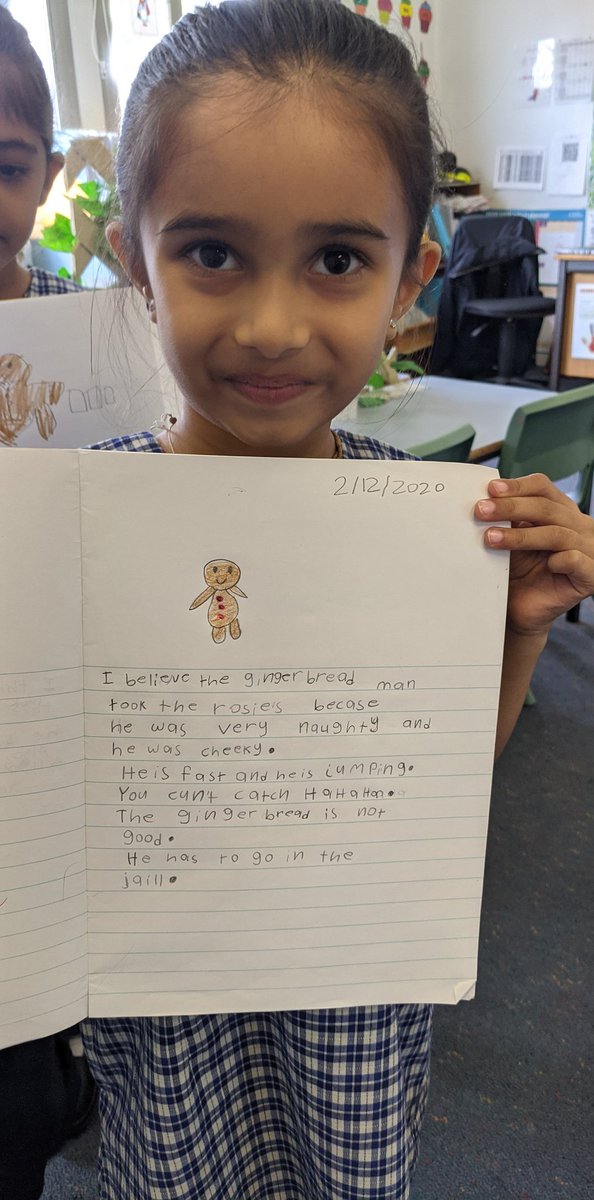 2/12/2020
I believe the gingerbread man
took the rosie's becase
he was very naughty and
he was cheeky.
He is fast and he is jumping.
You cun't catch HaHaHaa.
The gingerbread is not
good.
He has to go in the
jaill.